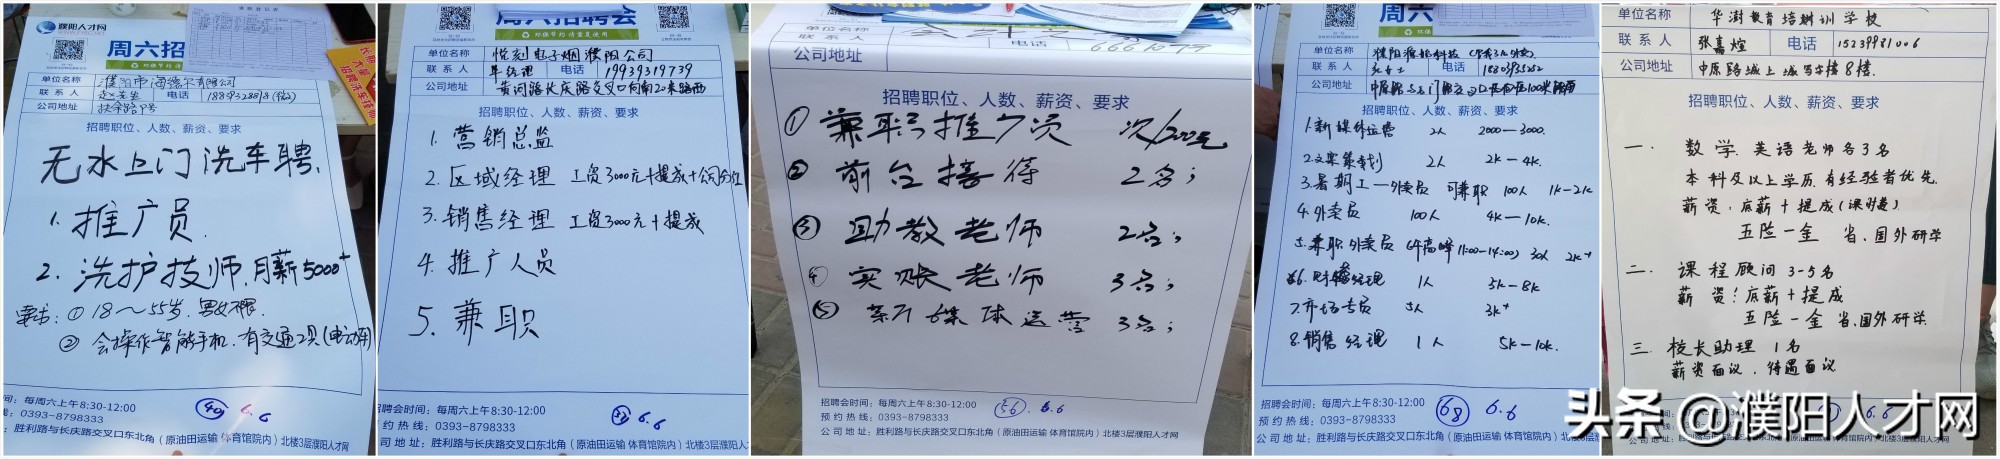 濮阳人才网
周六招
单位名称 濮阳市海德尔有限公司
联系人 赵先生 电话
公司地址 扶余路中号
招聘职位、人数、薪资、要求
无水上门洗车聘
1. 推广员.
2. 洗护技师.月薪5000+
要求:①18～55岁.男女不限.
②会操作智能手机.有交通工具(电动车)
招聘会时间:每周六上午8:30-12:00
线:0393-8798333
址:胜利路与长庆路交叉口东北角(原油田运输 体育馆院内)北楼3层濮阳人才网
40 6.6
周六招聘会
环保节约 请重复使用
单位名称 悦刻电子烟濮阳公司
联系人 电话 19939319739
公司地址 黄河路长庆路交叉口向南20米路西
招聘职位、人数、薪资、要求
1. 营销总监
2. 区域经理 工资3000元+提成+公司分红
3. 销售经理 工资3000元+提成
4. 推广人员
5. 兼职
招聘会时间:每周六上午8:30-12:00
约热线:0393-8798333
司地址:胜利路与长庆路交叉口东北角(原油田运输 体育馆院内)北楼3层濮阳
6.6
单位名称
联系人 电话
公司地址
招聘职位、人数、薪资、要求
① 兼职推广员 次/200元
② 前台接待 2名;
③ 助教老师 2名;
④ 实账老师 3名;
⑤ 新媒体运营 3名;
招聘会时间:每周六上午8:30-12:00
预约热线:0393-8798333
公司地址:胜利路与长庆路交叉口东北角(原油田运输 体育馆院内)北楼3层濮阳人才网
56 6.6
环保节约
单位名称
联系人 电话
公司地址
招聘职位、人数、薪资、要求
1.新媒体运营 2人 2000-3000.
2.文案策划 2人 2K-4K.
3.暑期工—外卖员 可兼职 100人 1K-2K
4.外卖员 100人 4K-10K.
5.兼职外卖员(午高峰11:00-14:00) 30人 2K+
6. 经理 1人 5K-8K
7.市场专员 5人 3K+
8.销售经理 1人 5K-10K.
招聘会时间:每周六上午8:30-12:00
预约热线:0393-8798333
公司地址:胜利路与长庆路交叉口东北角(原油田运输 体育馆院内)北楼3层濮阳人
68 6.6
单位名称 华澍教育培训学校
联系人 张嘉煊 电话 15239981006
公司地址 中原路城上城写字楼8楼.
招聘职位、人数、薪资、要求
一. 数学.英语老师各3名
本科及以上学历.有经验者优先.
薪资:底薪+提成(课时费)
五险一金 省、国外研学
二. 课程顾问 3-5名
薪资:底薪+提成
五险一金 省、国外研学.
三. 校长助理 1名
薪资面议.待遇面议
6.6
头条 @濮阳人才网